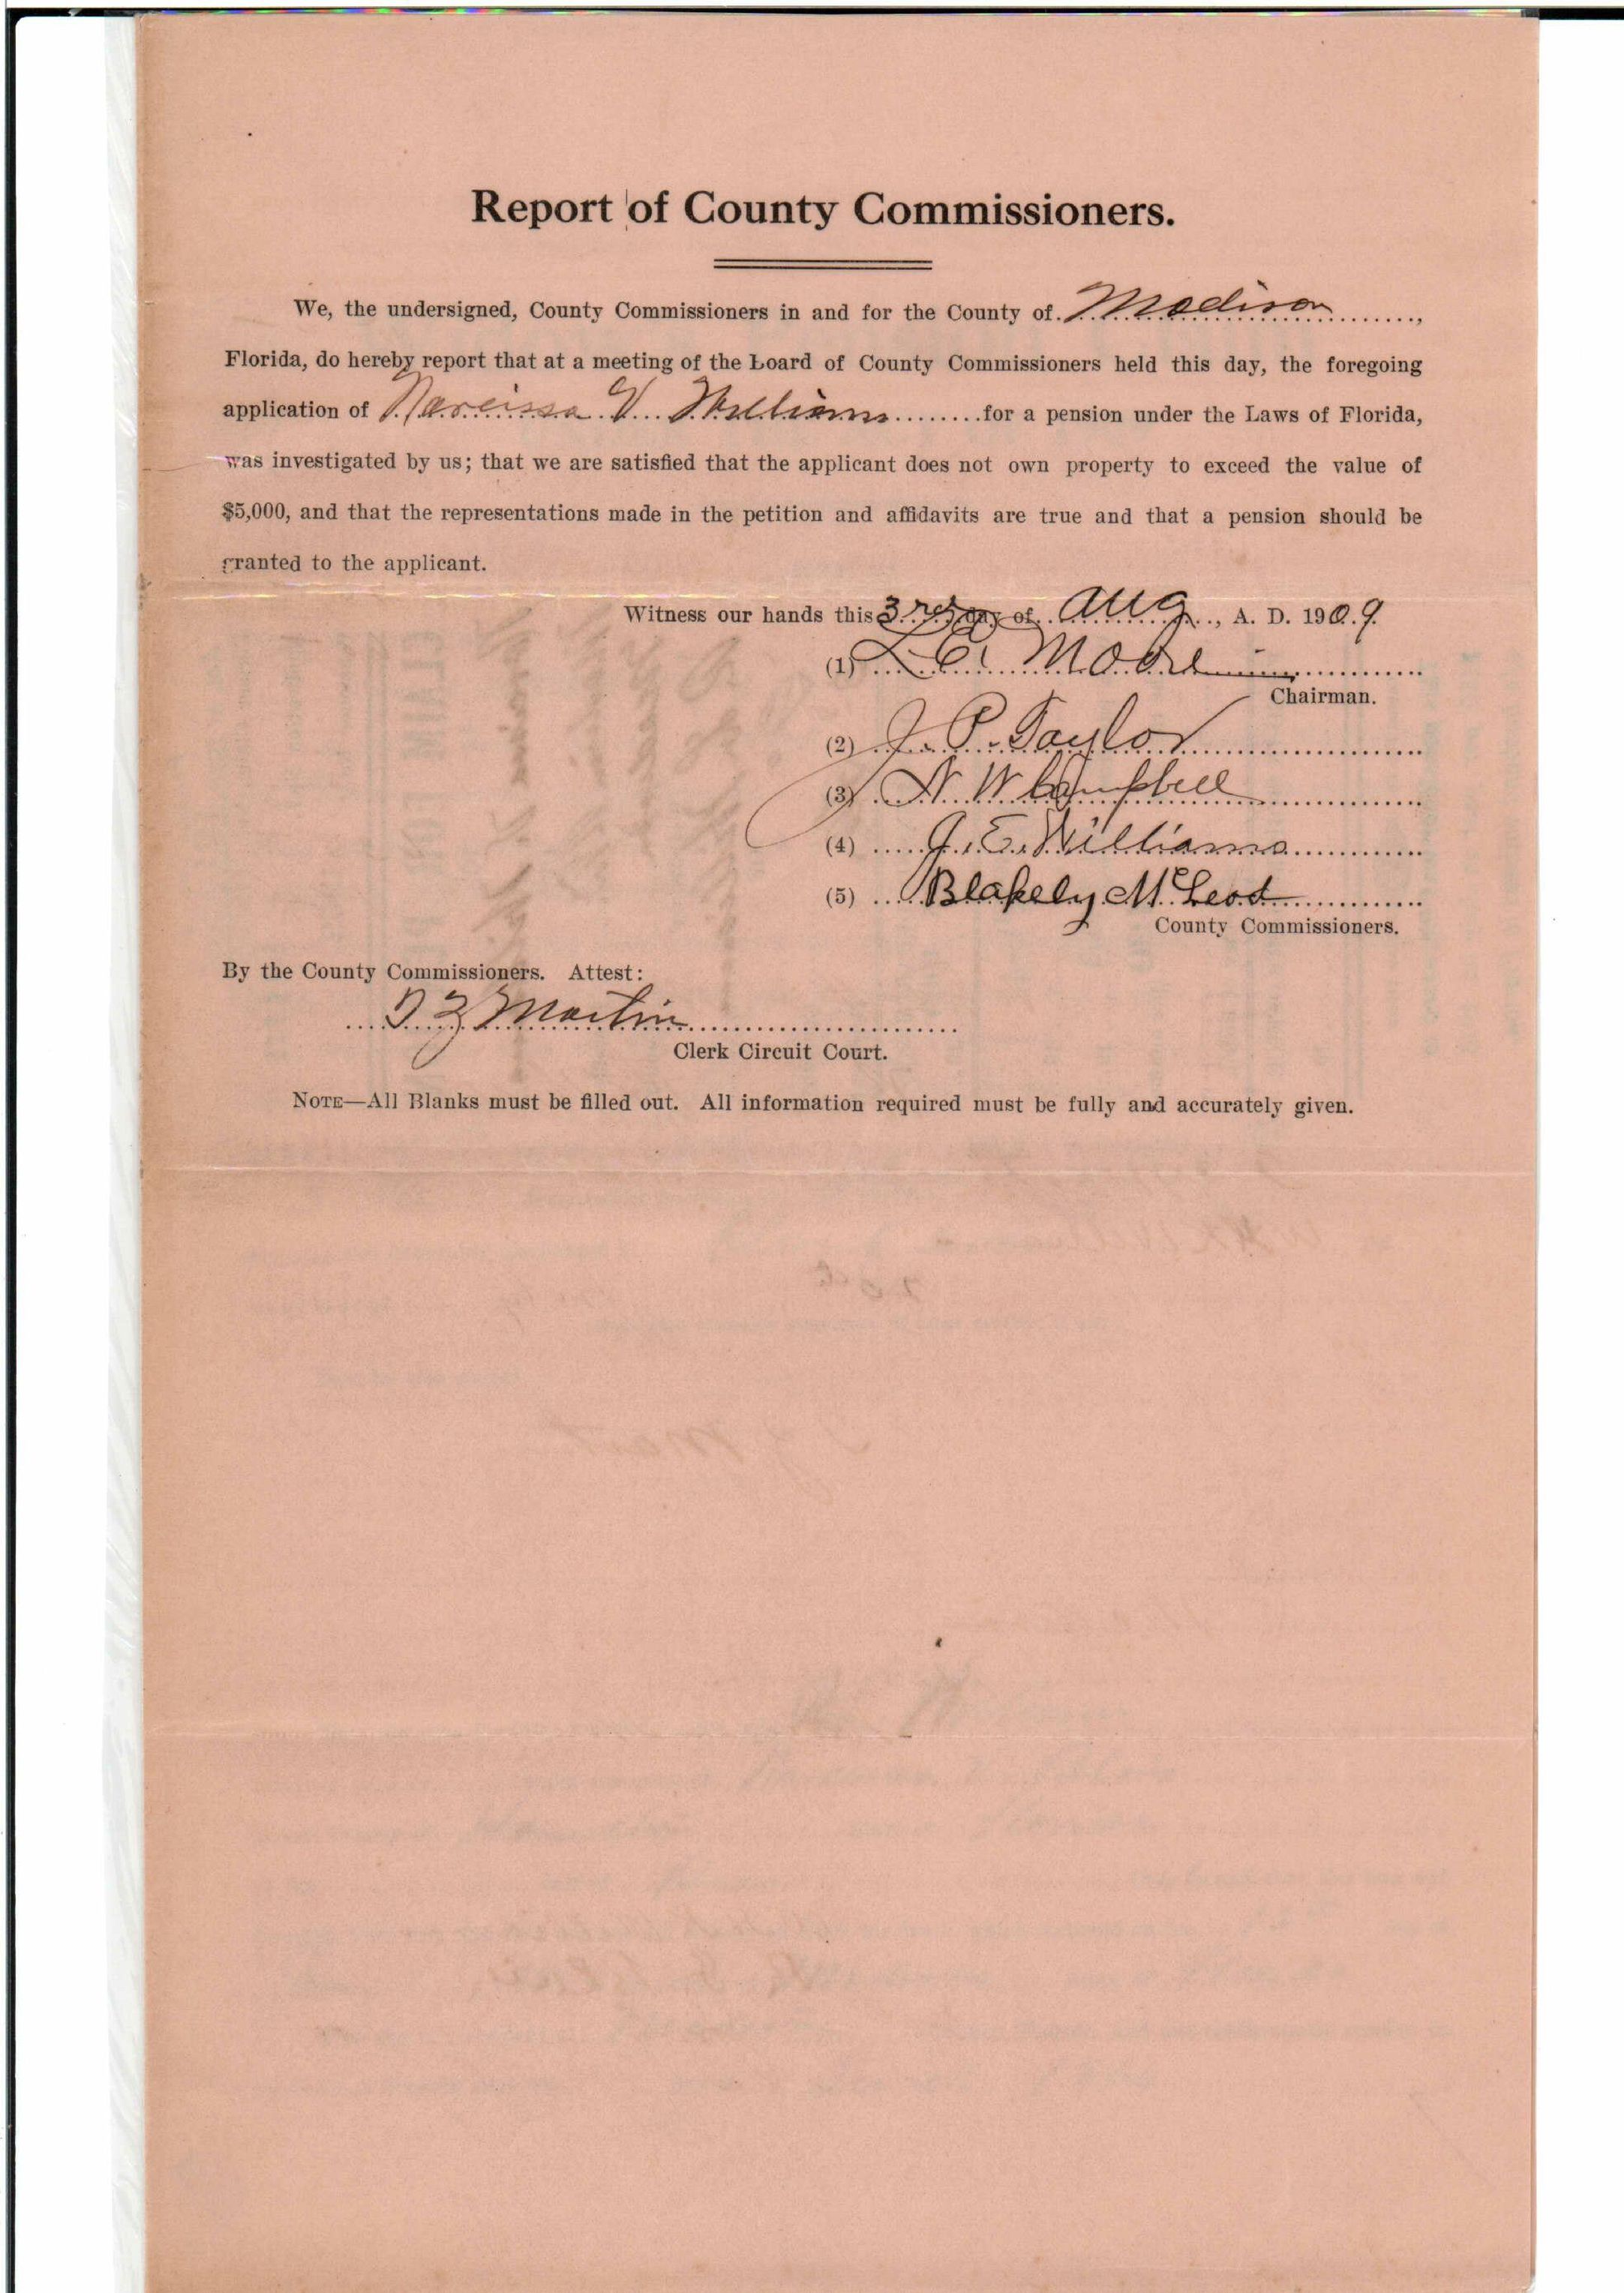 Report of County Commissioners.
We, the undersigned, County Commissioners in and for the County of Madison,
Florida, do hereby report that at a meeting of the Board of County Commissioners held this day, the foregoing
application of Narcissa V. Williams for a pension under the Laws of Florida,
was investigated by us; that we are satisfied that the applicant does not own property to exceed the value of
$5,000, and that the representations made in the petition and affidavits are true and that a pension should be
granted to the applicant.
Witness our hands this 3rd day of Aug, A. D. 1909.
(1) L. E. Moore
Chairman.
(2) J. P. Taylor
(3) N. W. Campbell
(4) J. E. Williams
(5) Blakely McLeod
County Commissioners.
By the County Commissioners. Attest:
T Z Martin
Clerk Circuit Court.
NOTE—All Blanks must be filled out. All information required must be fully and accurately given.